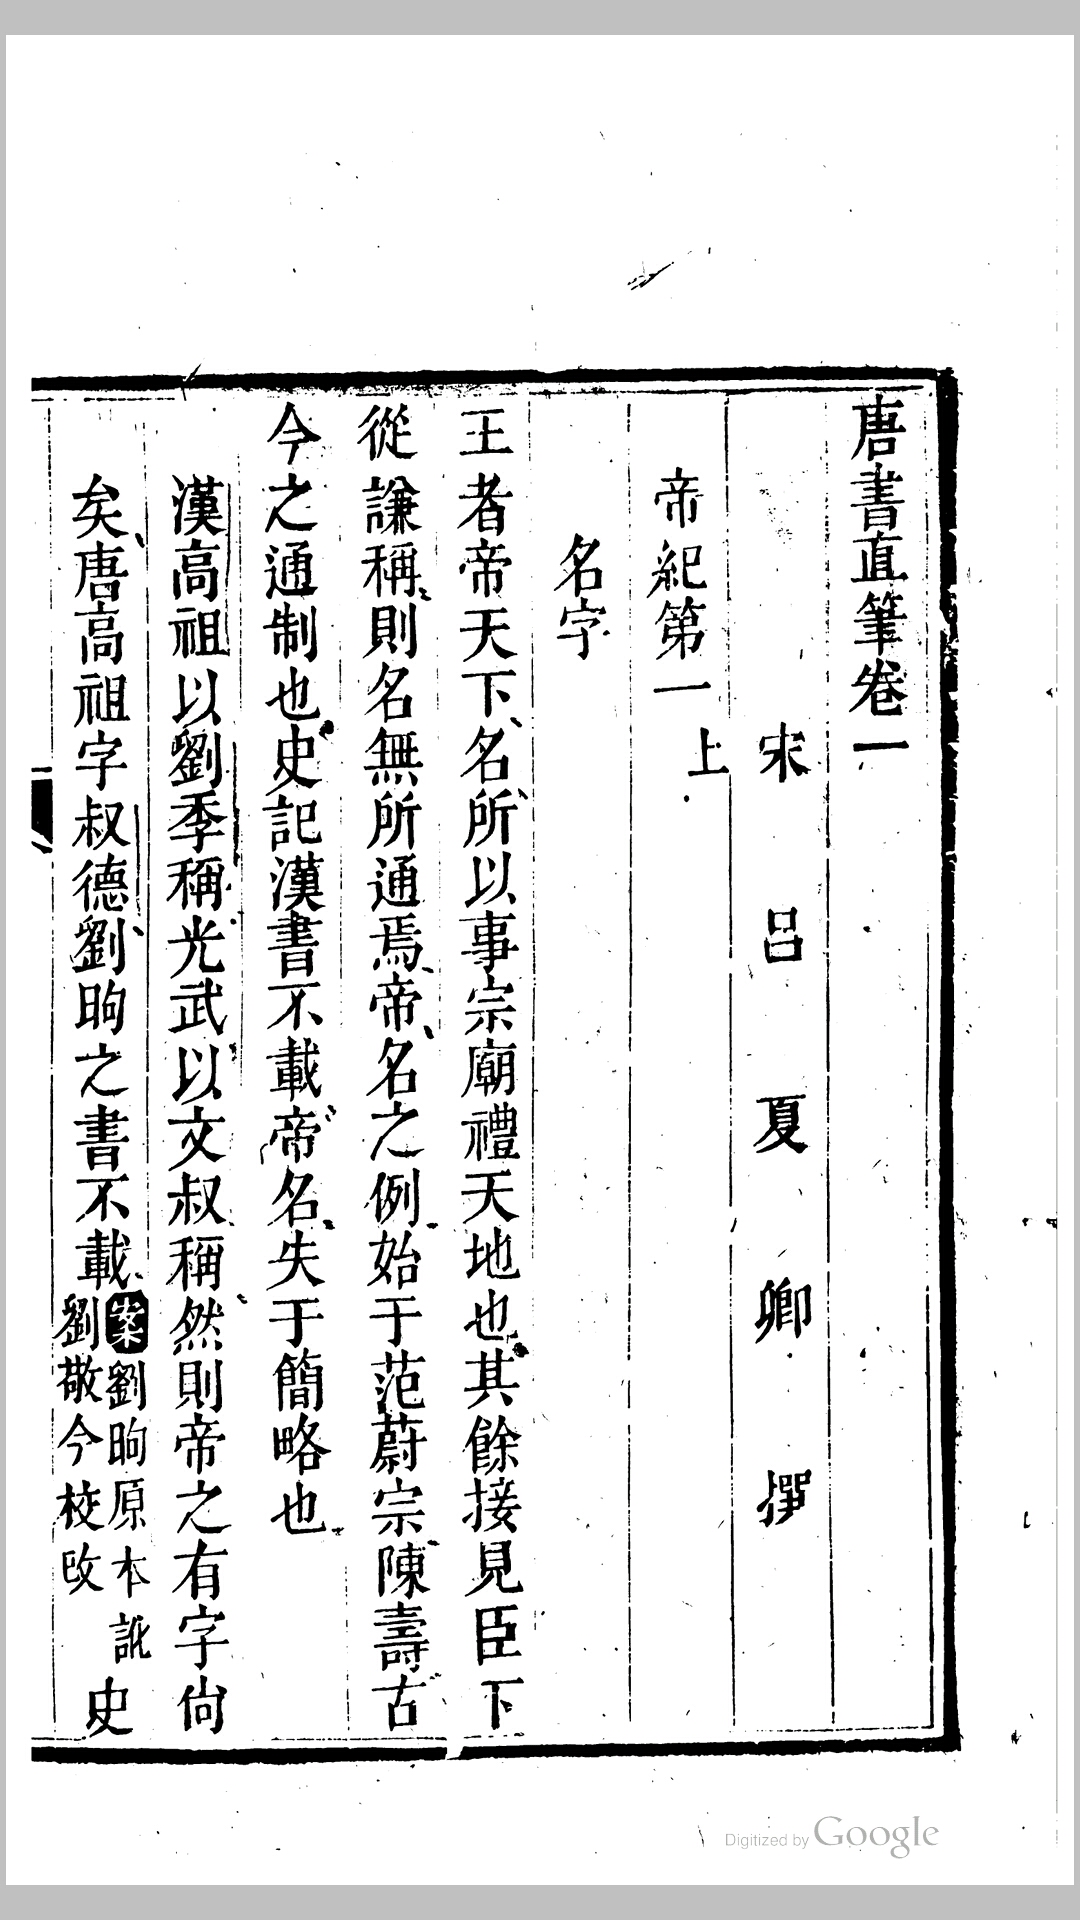 唐書直筆卷一
宋 呂 夏 卿 撰
帝紀第一上
名字
王者帝天下名所以事宗廟禮天地也其餘接見臣下
從謙稱則名無所通焉帝名之例始于范蔚宗陳壽古
今之通制也史記漢書不載帝名失于簡略也
漢高祖以劉季稱光武以文叔稱然則帝之有字尙
矣唐高祖字叔德劉昫之書不載案劉昫原本訛劉敬今校改史
Digitized by Google